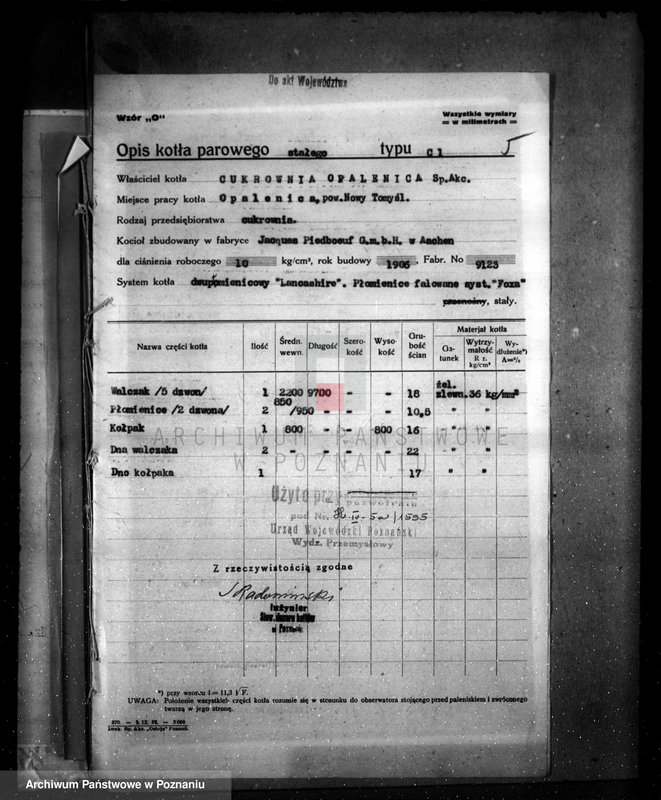 Do akt Województwa
Wzór „O“
Wszystkie wymiary
w milimetrach
5
Opis kotła parowego stałego typu C1
Właściciel kotła CUKROWNIA OPALENICA Sp.Akc.
Miejsce pracy kotła Opalenica, pow.Nowy Tomyśl.
Rodzaj przedsiębiorstwa cukrownia.
Kocioł zbudowany w fabryce Jacques Piedboeuf G.m.b.H. w Aachen
dla ciśnienia roboczego 10 kg/cm², rok budowy 1906, Fabr. No 9123
System kotła dwupłomienicowy "Lancashire". Płomienice falowane syst."Foxa"
przenośny, stały.
Nazwa części kotła Ilość Średn. wewn. Długość Szerokość Wysokość Grubość ścian Materjał kotła Gatunek Wytrzymałość R r. kg/cm² Wydłużenie*) A=%
Walczak /5 dzwon/ 1 2200 9700 - - 18 żel. zlewn. 36 kg/mm²
Płomienice /2 dzwona/ 2 850/950 - - - 10,5 " "
Kołpak 1 800 - - 800 16 " "
Dna walczaka 2 - - - - 22 " "
Dno kołpaka 1 17 " "
ARCHIWUM PAŃSTWOWE
W POZNANIU
Użyto przy
pod Nr.
Urząd Wojewódzki Poznański
Wydz. Przemysłowy
Z rzeczywistością zgodne
J Radomiński
Inżynier
Stow. dozoru kotłów
w Poznaniu
*) przy wzorcu l = 11,3 √F.
UWAGA: Położenie wszystkich części kotła rozumie się w stosunku do obserwatora stojącego przed paleniskiem i zwróconego
twarzą w jego stronę.
Druk. Sp. Akc. „Ostoja“ Poznań.
Archiwum Państwowe w Poznaniu